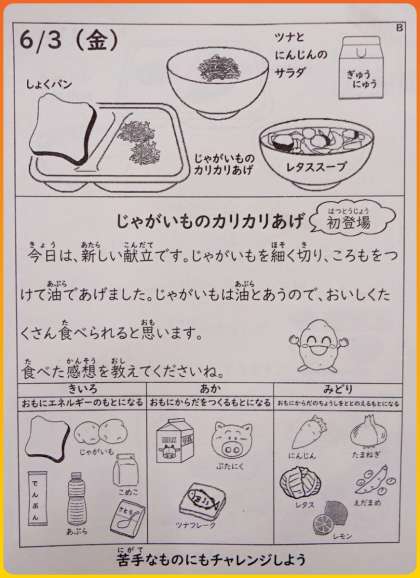 B
6/3（金）
ツナと
にんじんの
サラダ
ぎゅう
にゅう
しょくパン
じゃがいもの
カリカリあげ
レタススープ
じゃがいものカリカリあげ
はつとうじょう
初登場
きょう あたら こんだて ほそ き
今日は、新しい献立です。じゃがいもを細く切り、ころもをつ
あぶら あぶら
けて油であげました。じゃがいもは油とあうので、おいしくた
た おも
くさん食べられると思います。
た かんそう おし
食べた感想を教えてくださいね。
きいろ
おもにエネルギーのもとになる
じゃがいも
こめこ
でんぷん
あぶら
あか
おもにからだをつくるもとになる
ぶたにく
ツナフレーク
みどり
おもにからだのちょうしをととのえるもとになる
にんじん
たまねぎ
レタス
えだまめ
レモン
にがて
苦手なものにもチャレンジしよう